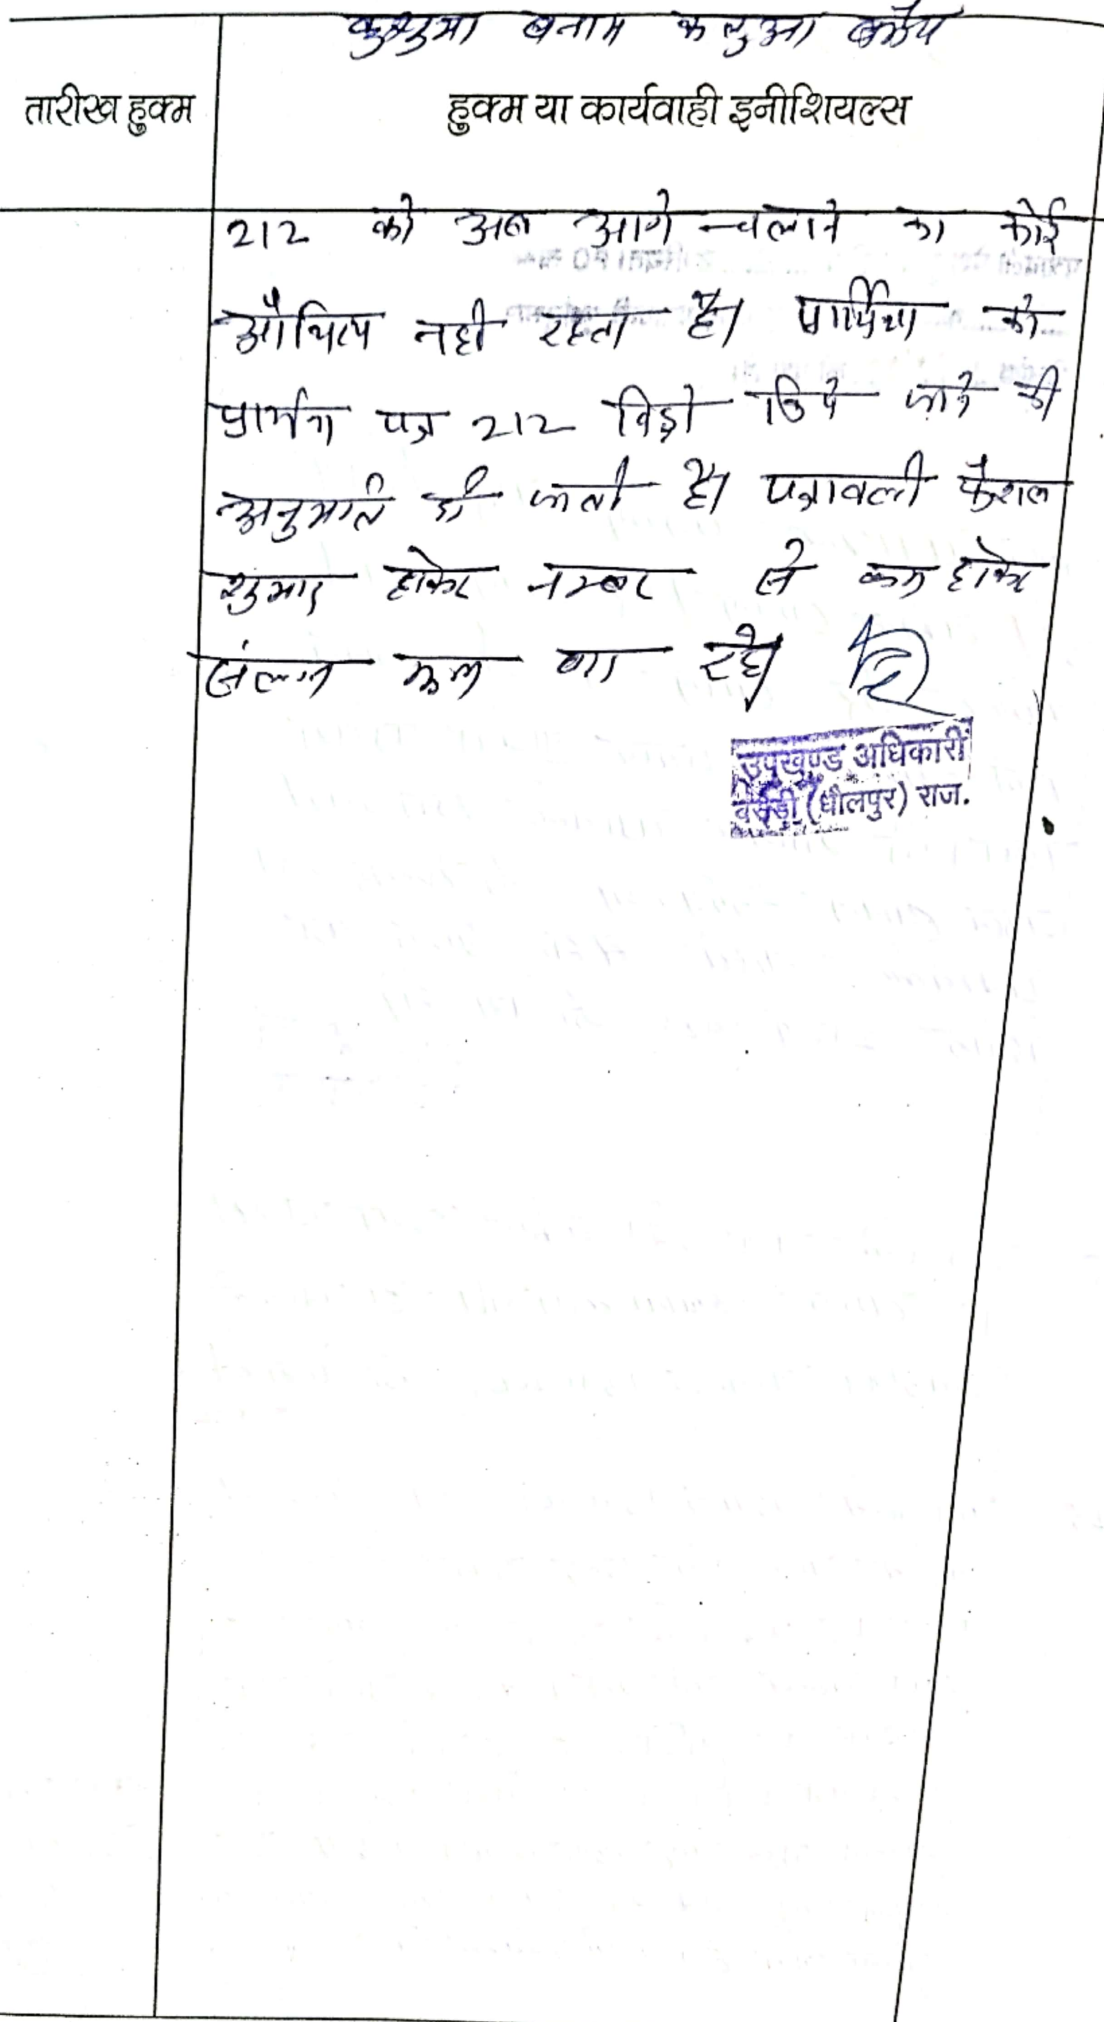 कुसुमा बनाम कलुआ वगैरा
तारीख हुक्म
हुक्म या कार्यवाही इनीशियल्स
212 को अब आगे चलाने का कोई
औचित्य नही रहता है। प्रार्थिया को
प्रार्थना पत्र 212 विड्रो किये जाने की
अनुमति दी जाती है। पत्रावली फैशल
शुमार होकर नम्बर से कम होकर
संलग्न मूल वाद रहे।
उपखण्ड अधिकारी
बसेड़ी (धौलपुर) राज.